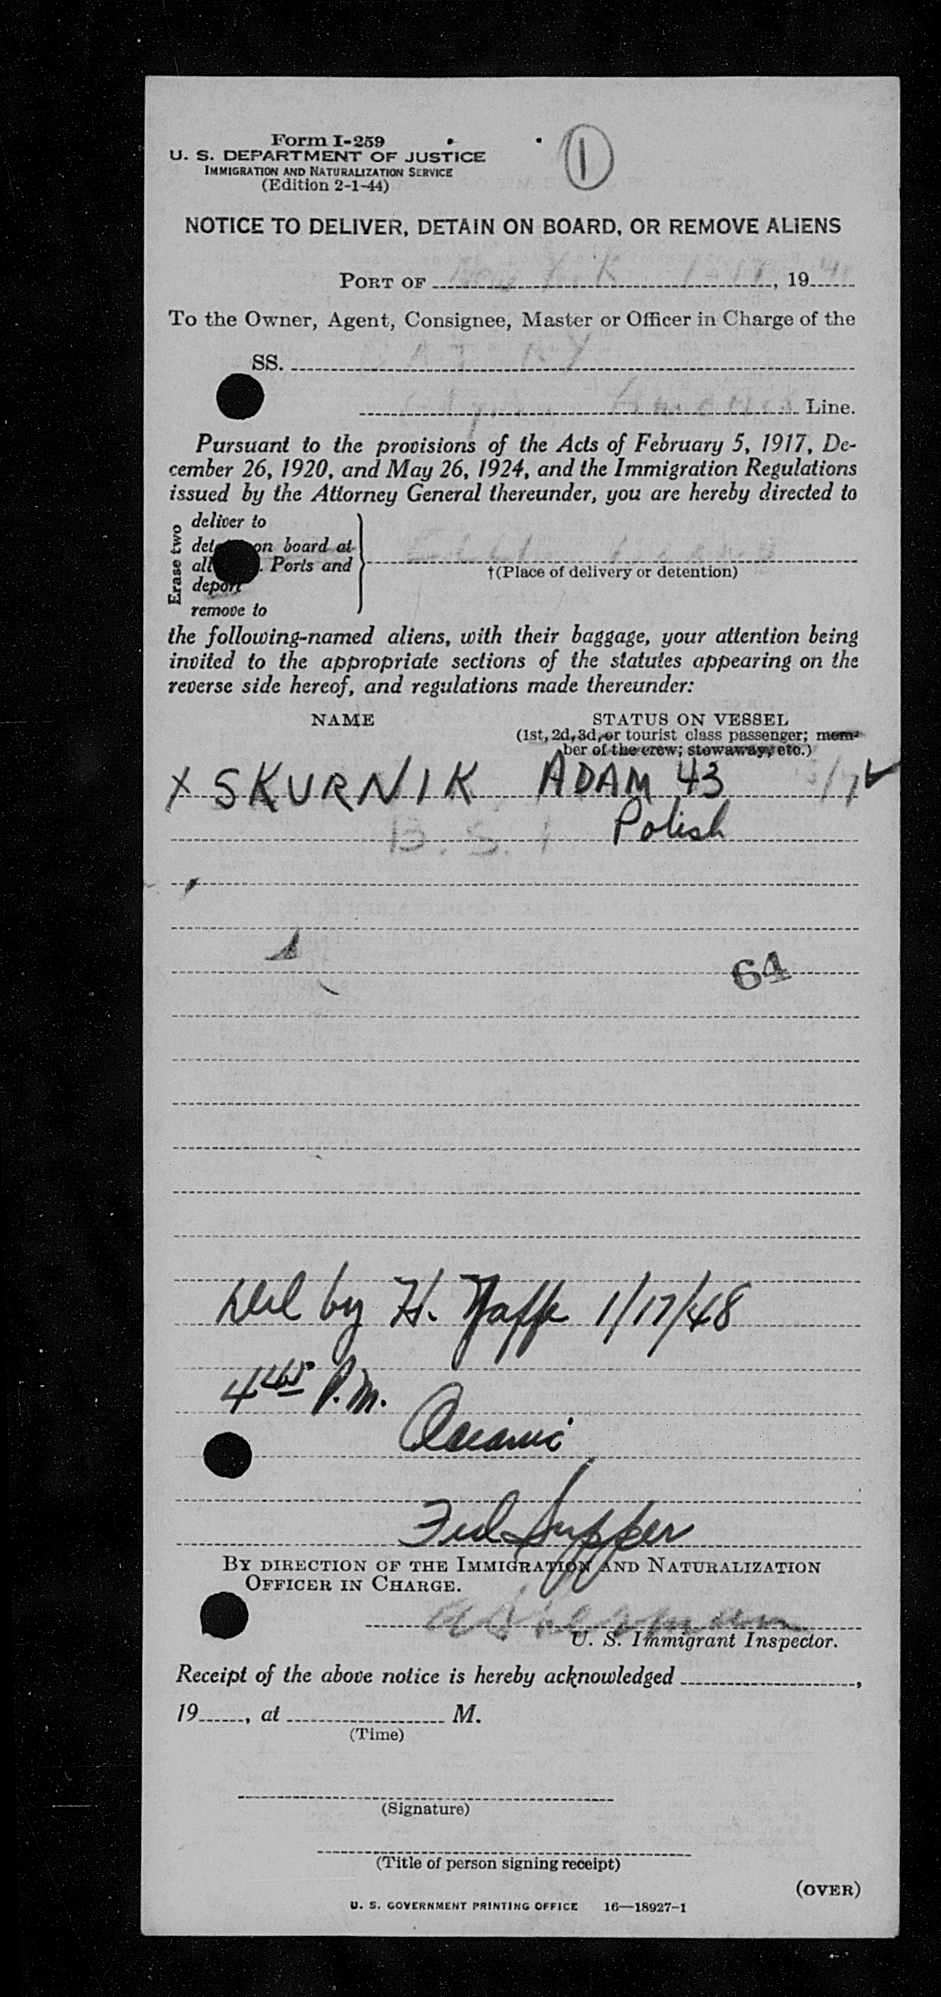 Form I-259
1
U. S. DEPARTMENT OF JUSTICE
IMMIGRATION AND NATURALIZATION SERVICE
(Edition 2-1-44)
NOTICE TO DELIVER, DETAIN ON BOARD, OR REMOVE ALIENS
PORT OF New York 1-17, 19
To the Owner, Agent, Consignee, Master or Officer in Charge of the
SS. BATORY
Gdynia America Line.
Pursuant to the provisions of the Acts of February 5, 1917, De-
cember 26, 1920, and May 26, 1924, and the Immigration Regulations
issued by the Attorney General thereunder, you are hereby directed to
Erase two
deliver to
on board at
all . Ports and
deport
remove to
Ellis Island
†(Place of delivery or detention)
the following-named aliens, with their baggage, your attention being
invited to the appropriate sections of the statutes appearing on the
reverse side hereof, and regulations made thereunder:
NAME STATUS ON VESSEL
(1st, 2d, 3d, or tourist class passenger; mem-
ber of the crew; stowaway, etc.)
X SKURNIK ADAM 43 3/7 ✓
B. S. I Polish
64
Del by H. Yaffe 1/17/48
4 45 P.M.
Oceanic
By DIRECTION OF THE IMMIGRATION AND NATURALIZATION
OFFICER IN CHARGE.
U. S. Immigrant Inspector.
Receipt of the above notice is hereby acknowledged ,
19 , at M.
(Time)
(Signature)
(Title of person signing receipt)
(OVER)
U. S. GOVERNMENT PRINTING OFFICE 16—18927-1